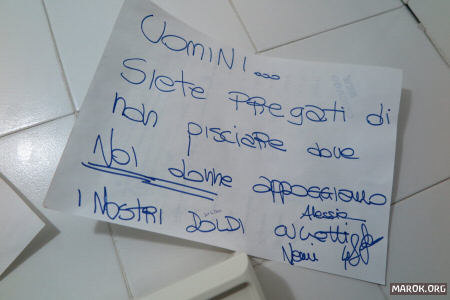 UOMINI...
SIETE PREGATI di
non pisciare dove
NOI donne appoggiamo
I NOSTRI DOLDI
Alessia
MAROK.ORG